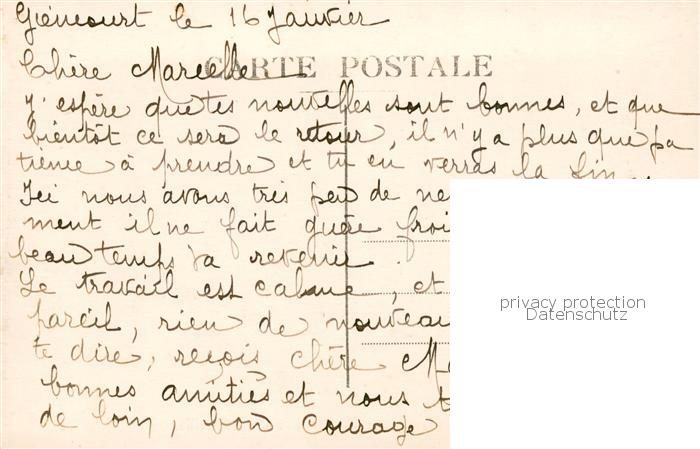 Giencourt le 16 Janvier
CARTE POSTALE
Chère Marcelle
J'espère que tes nouvelles sont bonnes, et que
bientôt ce sera le retour, il n'y a plus que pa
tience à prendre et tu en verras la fin
Ici nous avons très peu de ne
ment il ne fait guère froi
beau temps va revenir.
Le travail est calme, et
pareil, rien de nouveau
te dire, reçois chère Ma
bonnes amitiés et nous t
de loin, bon courage
privacy protection
Datenschutz